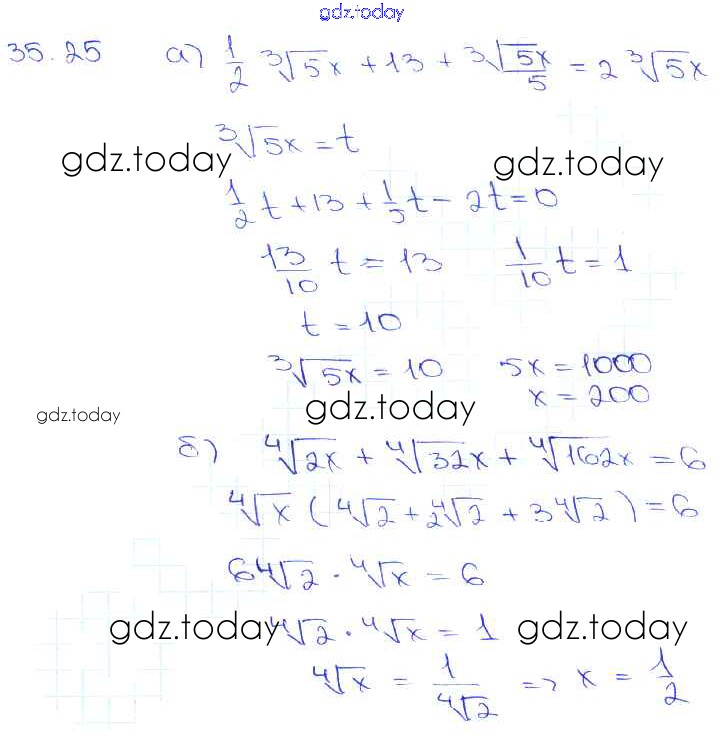 gdz.today
35.25 а) 1/2 ∛5x + 13 + ∛5x/5 = 2 ∛5x
∛5x = t
gdz.today gdz.today
1/2 t + 13 + 1/5 t - 2t = 0
13/10 t = 13 1/10 t = 1
t = 10
∛5x = 10 5x = 1000
x = 200
gdz.today gdz.today
б) ∜2x + ∜32x + ∜162x = 6
∜x (∜2 + 2∜2 + 3∜2) = 6
6∜2 · ∜x = 6
gdz.today ∜2 · ∜x = 1 gdz.today
∜x = 1/∜2 => x = 1/2